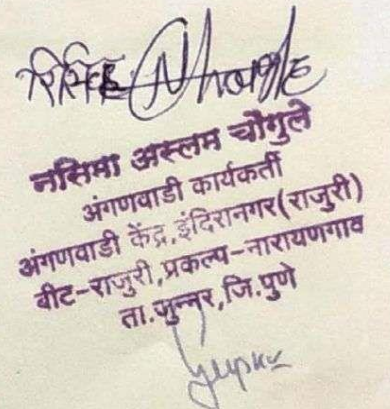 नसिमा अस्लम चौगुले
अंगणवाडी कार्यकर्ती
अंगणवाडी केंद्र,इंदिरानगर(राजुरी)
वीट-राजुरी,प्रकल्प-नारायणगाव
ता.जुन्नर,जि.पुणे